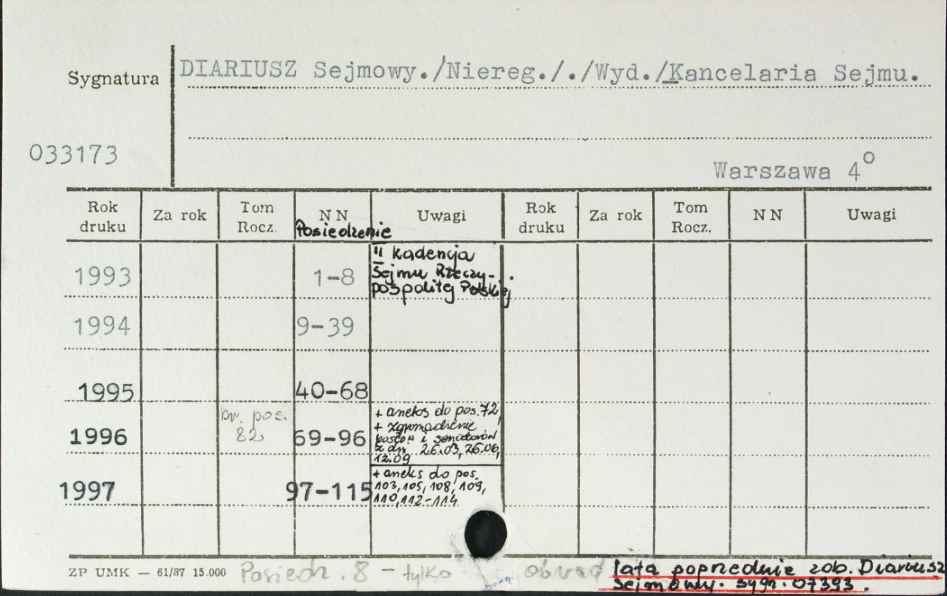 Sygnatura DIARIUSZ Sejmowy./Niereg./. /Wyd./Kancelaria Sejmu.
033173
Warszawa 4°
Rok druku Za rok Tom Rocz. NN Uwagi Rok druku Za rok Tom Rocz. NN Uwagi
Posiedzenie
1993 1-8 II kadencja
Sejmu Rzeczy-
pospolitej Polskiej
1994 9-39
1995 40-68
1996 pos. 82 69-96 + aneks do pos. 72,
+ zgromadzenie
posłów i senatorów
z dn 26.03, 26.06,
12.09
1997 97-115 + aneks do pos.
103, 105, 108, 109,
110, 112-114
ZP UMK — 61/87 15.000 Posiedz. 8 - tylko obrad lata poprzednie zob. Diariusz
Sejmowy. sygn. 07393.